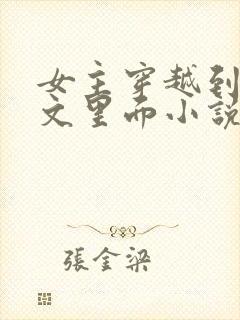 女主穿越到
文里而小說
張金梁